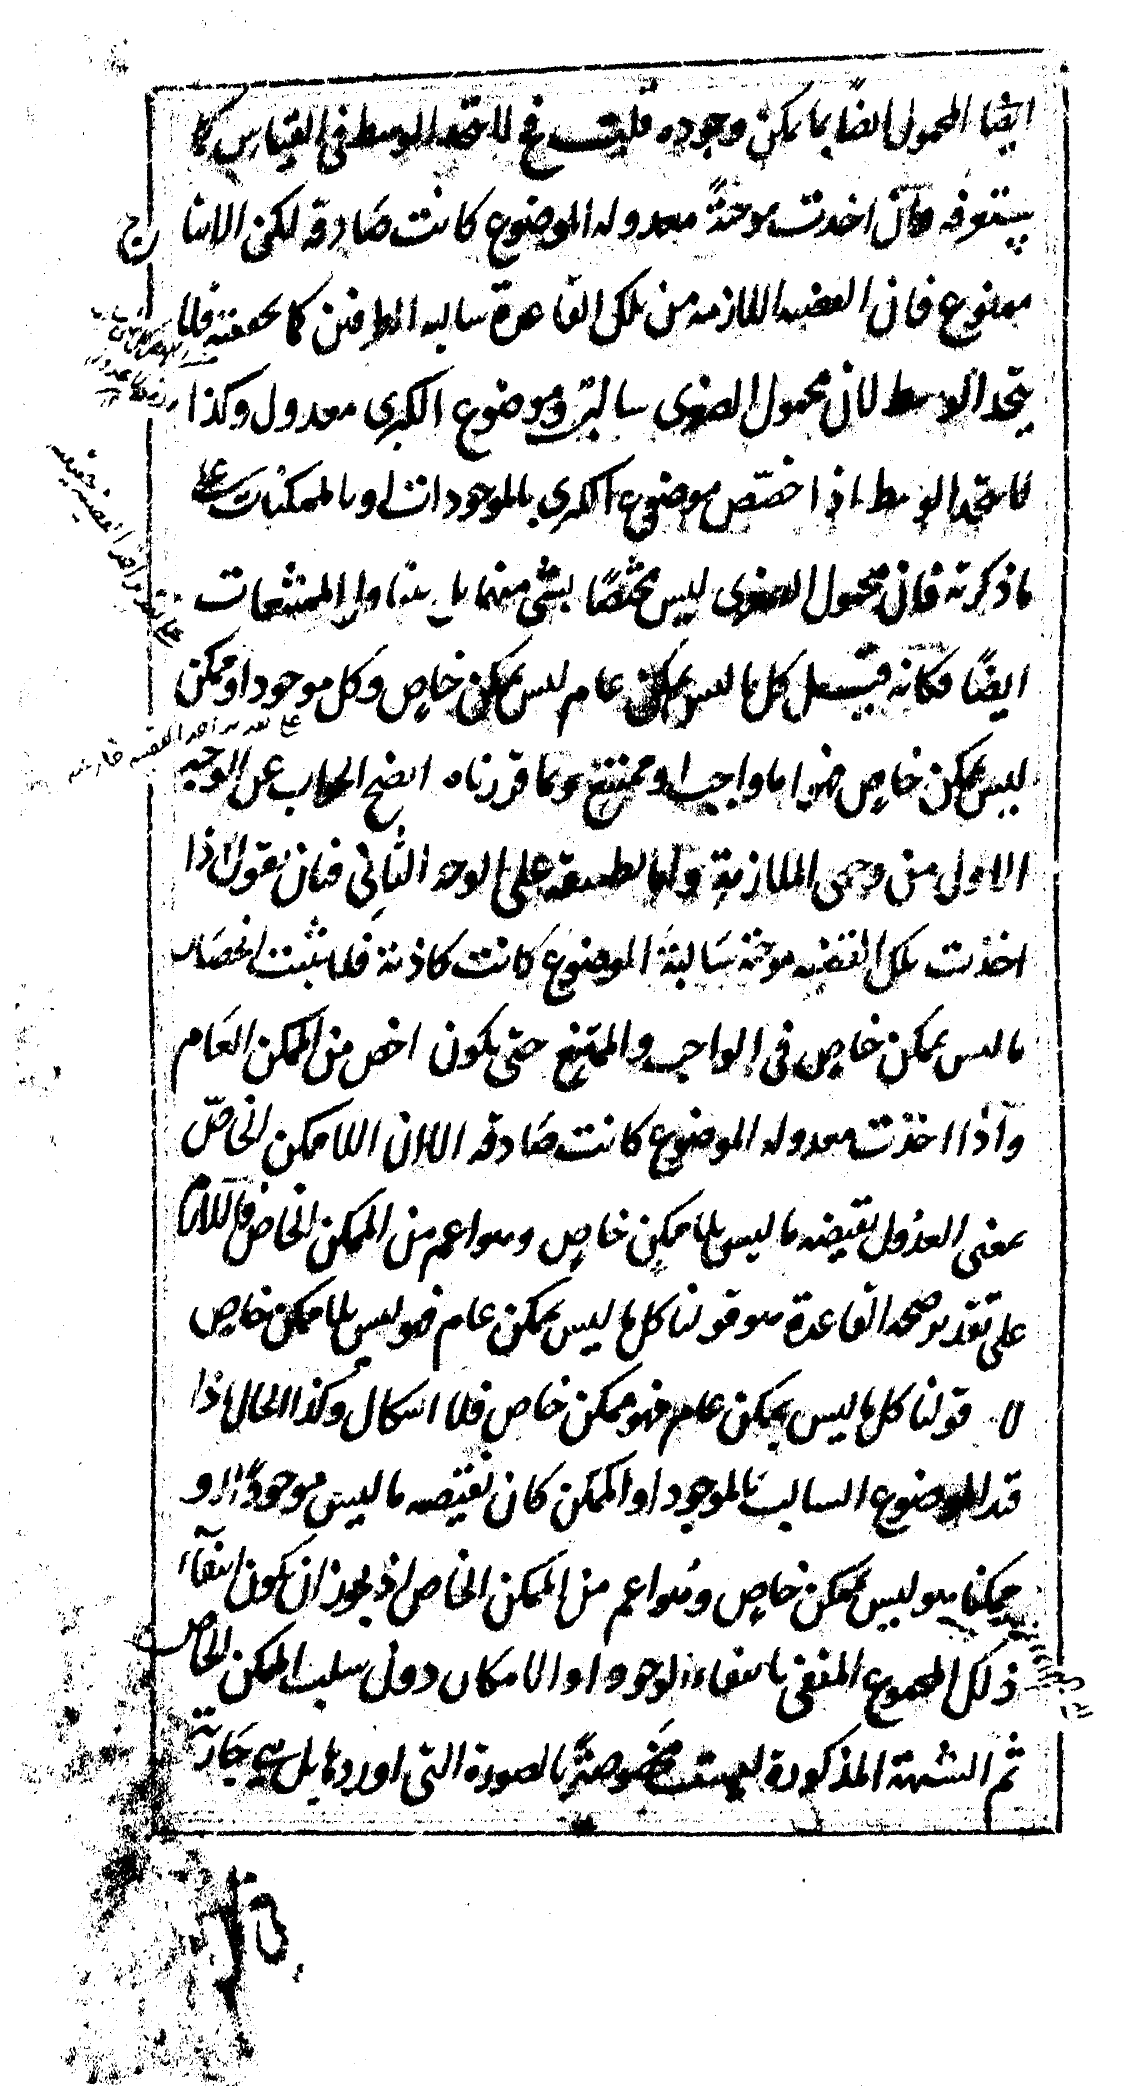 ايضا المحمول ايضًا بما يمكن وجوده فليقـ فح لا يتحد الوسط في القياس كما
ستعرفه وان اخذت موجبةً معدوله الموضوع كانت صَادقة لكن الانتاج
ممنوع فان القضيه اللازمه من تلك القاعدة سالبه الطرفين كما تحققته فلا
يتحد الاوسط لان محمول الصغرى سالبة وموضوع الكبرى معدول وكذا
لا يتحد الوسط اذا اختصّ موضوع الكبرى بالموجودات او بالممكنات على
ما ذكرته فان محمول الصغرى ليس مختصًا بشئ منهما بل يتناول الممتنعات
ايضًا فكانه قيل كل ما ليس بممكن عام ليس بممكن خاص وكل موجود او ممكن
ليس بممكن خاص فهو اما واجب او ممتنع وبما قررناه اتضح الجواب عن الوجه
الاول من وجهى الملازمة واما تطبيقه على الوجه الثاني فبان نقول اذا
اخذت تلك القضيه موجبة سَالبة الموضوع كانت كاذبة فلا يثبت انحصَار
ما ليس بممكن خاص في الواجب والممتنع حتى يكون اخص من الممكن العَام
وآذا اخذت معدوله الموضوع كانت صَادقه الا ان اللاممكن الخاصّ
بمعنى العدول نقيضه ما ليس بلا ممكن خاص وهو اعم من الممكن الخاص فاللازم
على تقدير صحة القاعدة هو قولنا كل ما ليس بممكن عام فهو ليس بلا ممكن خاص
لا قولنا كل ما ليس بممكن عام فهو ممكن خاص فلا اشكال وكذا الحال اذا
قيد الموضوع السالب بالموجود او الممكن كان نقيضه ما ليس موجودًا او
ممكنا هو ليس بممكن خاص وهو اعم من الممكن الخاص اذ يجوز ان يكون انتفآء
ذلك المجموع المنفى بانتفاء الوجود او الامكان دون سلب الممكن الخاص
ثم الشبهة المذكورة ليست مخصوصة بالصورة التى اوردها بل هي جَارية